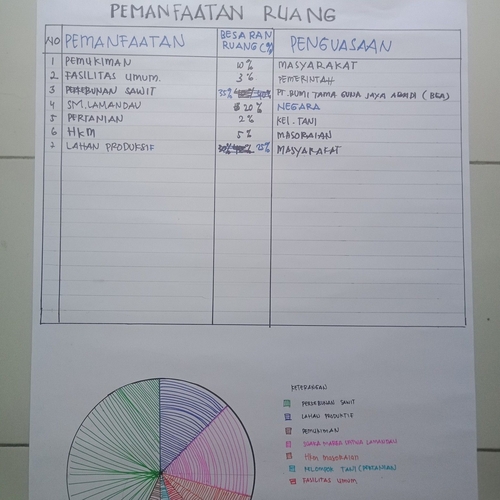 PEMANFAATAN RUANG
NO PEMANFAATAN BESARAN RUANG (%) PENGUASAAN
1 PEMUKIMAN 10% MASYARAKAT
2 FASILITAS UMUM. 3% PEMERINTAH
3 PERKEBUNAN SAWIT 35% PT. BUMI TAMA GUNA JAYA ABADI (BGA)
4 SM. LAMANDAU 20% NEGARA
5 PERTANIAN 2% KEL. TANI
6 HKM 5% MASORAIAN
7 LAHAN PRODUKSIF 25% MASYARAKAT
KETERANGAN
PERKEBUNAN SAWIT
LAHAN PRODUKTIF
PEMUKIMAN
SUAKA MARGA SATWA LAMANDAU
HKM MASORAIAN
KELOMPOK TANI (PERTANIAN)
FASILITAS UMUM